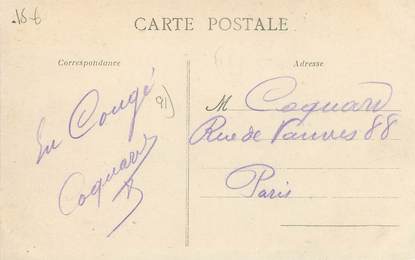 15-6
CARTE POSTALE
Correspondance
Adresse
En Congé
91)
Coquard
M Coquard
Rue de Vannes 88
Paris